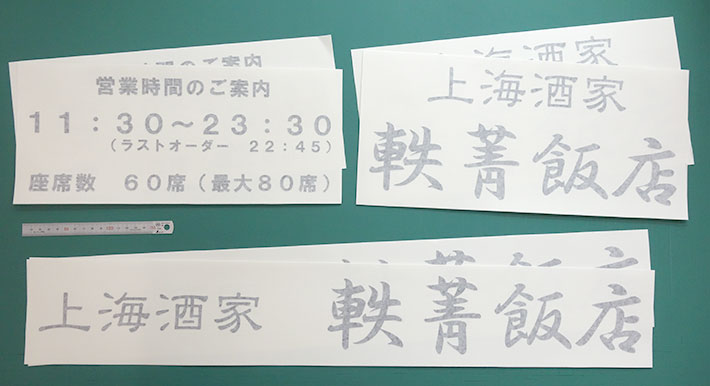 営業時間のご案内
11:30~23:30
(ラストオーダー 22:45)
座席数 60席(最大80席)
上海酒家
上海酒家
軼菁飯店
上海酒家 軼菁飯店